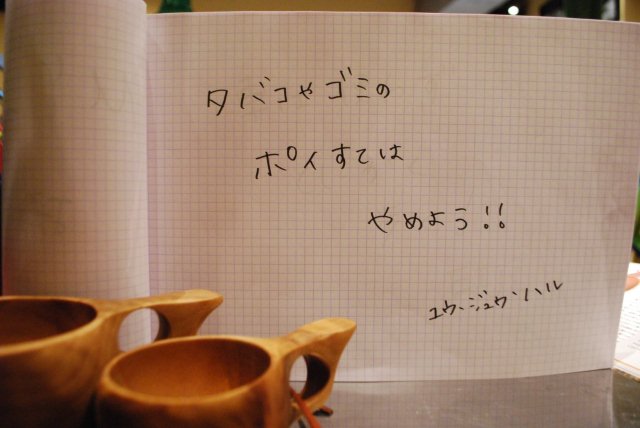 タバコやゴミの
ポイすては
やめよう!!
ユウ、ジュウン、ハル